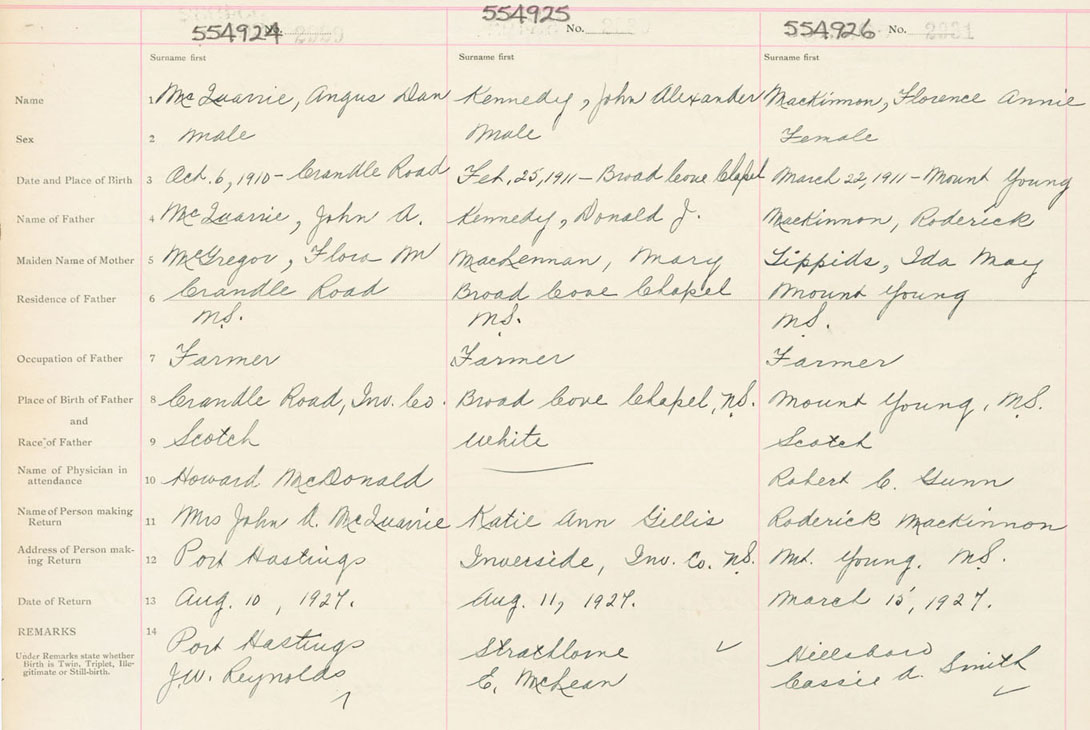 554924 554925 554926
No. No. 2031
Surname first Surname first Surname first
Name 1 McQuarrie, Angus Dan Kennedy, John Alexander MacKinnon, Florence Annie
Sex 2 Male Male Female
Date and Place of Birth 3 Oct. 6, 1910 - Crandle Road Feb. 25, 1911 - Broad Cove Chapel March 22, 1911 - Mount Young
Name of Father 4 McQuarrie, John A. Kennedy, Donald J. MacKinnon, Roderick
Maiden Name of Mother 5 McGregor, Flora M MacLennan, Mary Tippids, Ida May
Residence of Father 6 Crandle Road Broad Cove Chapel Mount Young
N.S. N.S. N.S.
Occupation of Father 7 Farmer Farmer Farmer
Place of Birth of Father 8 Crandle Road, Inv. Co. Broad Cove Chapel, N.S. Mount Young, N.S.
and
Race of Father 9 Scotch White Scotch
Name of Physician in
attendance 10 Howard McDonald Robert C. Gunn
Name of Person making
Return 11 Mrs John A. McQuarrie Katie Ann Gillis Roderick MacKinnon
Address of Person mak-
ing Return 12 Port Hastings Inverside, Inv. Co. N.S. Mt. Young. N.S.
Date of Return 13 Aug. 10, 1927. Aug. 11, 1927. March 15, 1927.
REMARKS 14 Port Hastings Strathlorne Hillsboro
Under Remarks state whether
Birth is Twin, Triplet, Ille-
gitimate or Still-birth. J.W. Reynolds E. McLean Cassie A. Smith